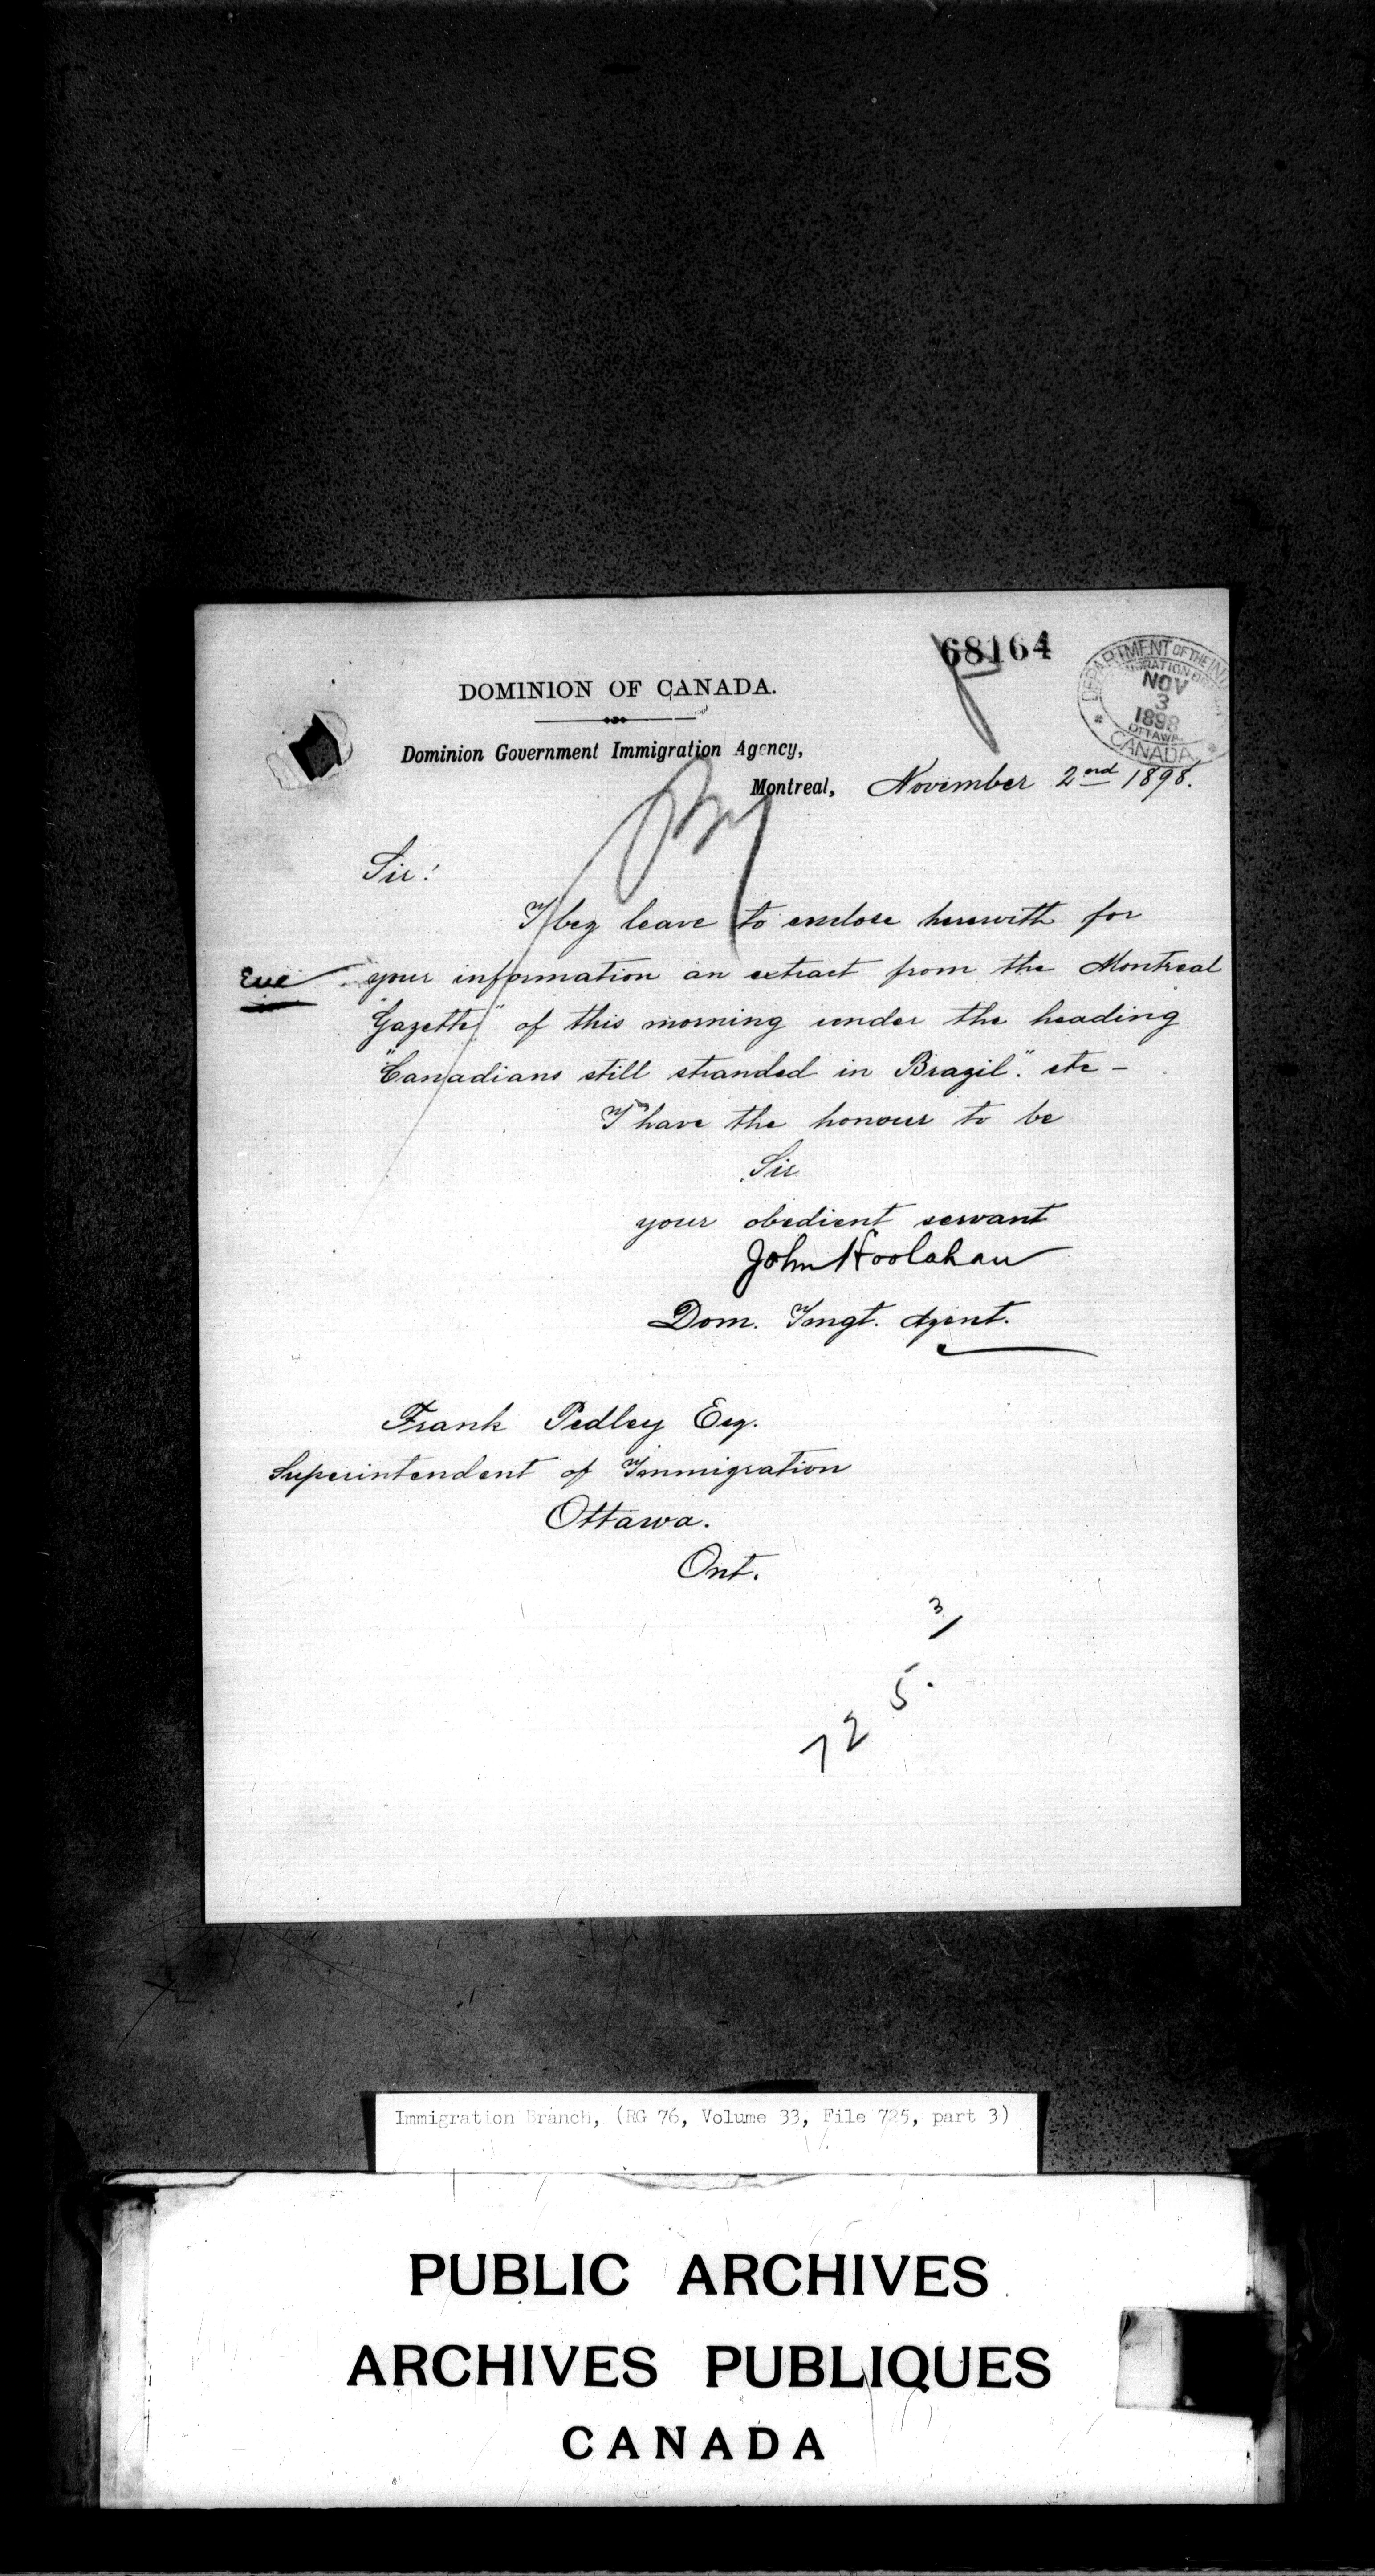 68164
DEPARTMENT OF THE INT
MIGRATION
NOV
3
1898
OTTAWA
CANADA
DOMINION OF CANADA.
Dominion Government Immigration Agency,
Montreal, November 2nd 1898.
Sir!
I beg leave to enclose herewith for
your information an extract from the Montreal
"Gazette" of this morning under the heading
"Canadians still stranded in Brazil". etc -
I have the honour to be
Sir
your obedient servant
John Hoolahan
Dom. Imgt. Agent.
Frank Pedley Esq.
Superintendent of Immigration
Ottawa.
Ont.
725.3/
Immigration Branch, (RG 76, Volume 33, File 725, part 3)
PUBLIC ARCHIVES
ARCHIVES PUBLIQUES
CANADA